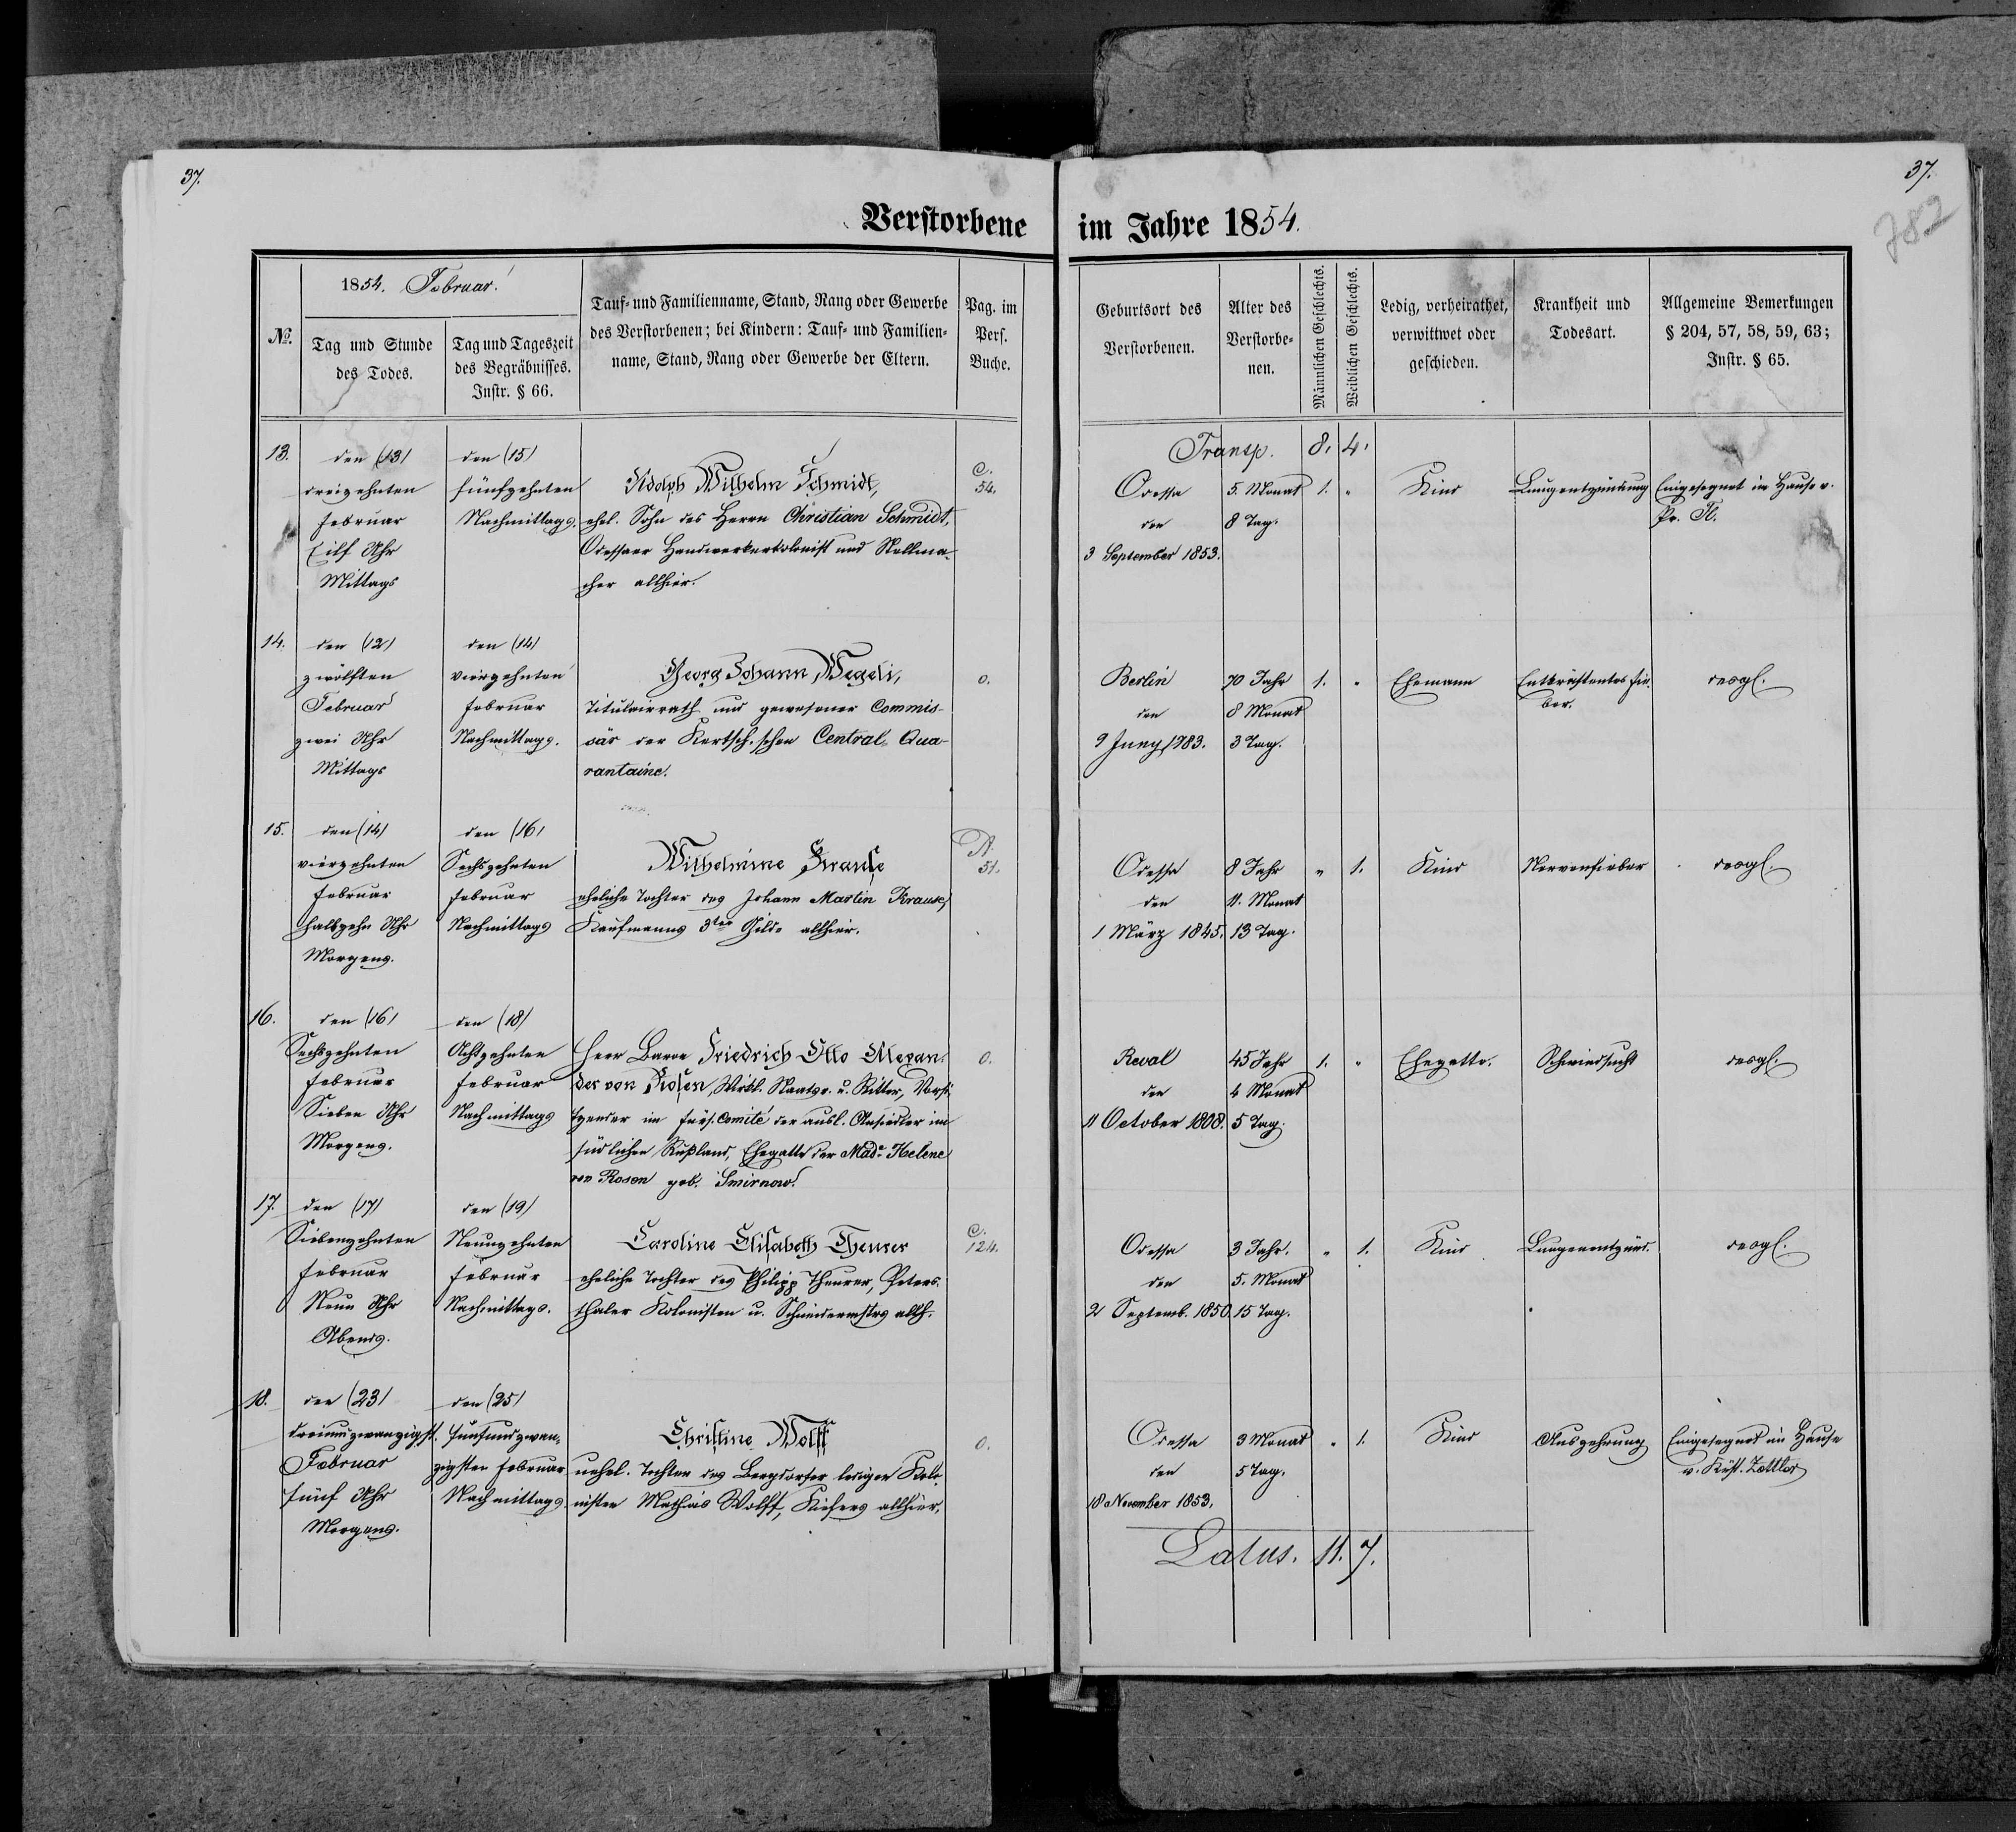 37.
37.
782
Verstorbene im Jahre 1854.
No.
1854. Februar.
Tag und Stunde
des Todes.
Tag und Tageszeit
des Begräbnisses.
Instr. § 66.
Tauf- und Familienname, Stand, Rang oder Gewerbe
des Verstorbenen; bei Kindern: Tauf- und Familien-
name, Stand, Rang oder Gewerbe der Eltern.
Pag. im
Pers.
Buche.
Geburtsort des
Verstorbenen.
Alter des
Verstorbe-
nen.
Männlichen Geschlechts.
Weiblichen Geschlechts.
Ledig, verheirathet,
verwittwet oder
geschieden.
Krankheit und
Todesart.
Allgemeine Bemerkungen
§ 204, 57, 58, 59, 63;
Instr. § 65.
Transp. 8. 4.
13.
den (13)
dreizehnten
Februar
Eilf Uhr
Mittags
den (15)
fünfzehnten
Nachmittags.
Adolph Wilhelm Schmidt,
ehel. Sohn des Herrn Christian Schmidt,
Odessaer Handwerkerkolonist und Stellma-
cher allhier.
C.
54.
Odessa
den
3 September 1853.
5. Monat
8 Tag.
1. "
Kind
Lungenentzündung
Eingesegnet im Hause v.
Pr. Fl.
14.
den (12)
zwölften
Februar
zwei Uhr
Mittags
den (14)
vierzehnten
Februar
Nachmittags.
Georg Johann Wegeli,
Titulairrath und gewesener Commis-
sär der Kertsch'schen Central-Qua-
rantaine.
0.
Berlin
den
9 Juny 1783.
70 Jahr
8 Monat
3 Tag.
1. "
Ehemann
Entkräftendes Fie-
ber.
desgl.
15.
den (14)
vierzehnten
Februar
halbzehn Uhr
Morgens.
den (16)
Sechszehnten
Februar
Nachmittags
Wilhelmine Krause
eheliche Tochter des Johann Martin Krause,
Kaufmanns 3ter Gilde allhier.
A.
51.
Odessa
den
1 März 1845.
8 Jahr
11. Monat
13 Tag.
" 1.
Kind
Nervenfieber
desgl.
16.
den (16)
Sechszehnten
Februar
Sieben Uhr
Morgens.
den (18)
Achtzehnten
Februar
Nachmittags
Herr Baron Friedrich Otto Alexan-
der von Rosen, Wirkl. Staatsr. u. Ritter, Vorsi-
tzender im Fürs. Comité der ausl. Ansiedler im
südlichen Rußland, Ehegatte der Made Helene
von Rosen geb. Smirnow.
0.
Reval
den
11 October 1808.
45 Jahr
4 Monat
5 Tag.
1. "
Ehegatte.
Schwindsucht
desgl.
17.
den (17)
Siebenzehnten
Februar
Neun Uhr
Abends.
den (19)
Neunzehnten
Februar
Nachmittags.
Caroline Elisabeth Theurer
eheliche Tochter des Philipp Theurer, Peters-
thaler Kolonisten u. Schneidermstrs allh.
C.
124.
Odessa
den
2 Septemb. 1850.
3 Jahr.
5. Monat
15 Tag.
" 1.
Kind
Lungenentzünd.
desgl.
18.
den (23)
dreiundzwanzigst.
Februar
fünf Uhr
Morgens.
den (25)
fünfundzwan-
zigsten Februar
Nachmittags.
Christine Wolff
unehel. Tochter des Bergdorfer ledigen Kolo-
nisten Mathias Wolff, Kiefers allhier.
0.
Odessa
den
18 November 1853.
3 Monat
5 Tag.
" 1.
Kind
Auszehrung
Eingesegnet im Hause
v. Küst. Zettler
Latus. 11. 7.